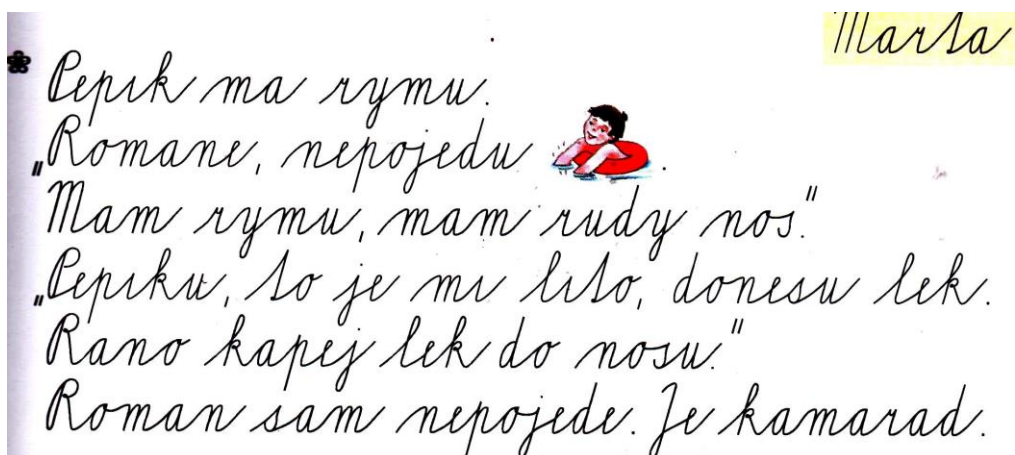 Marta
Pepik ma rymu.
„Romane, nepojedu .
Mam rymu, mam rudy nos."
„Pepiku, to je mi lito, donesu lek.
Rano kapej lek do nosu."
Roman sam nepojede. Je kamarad.